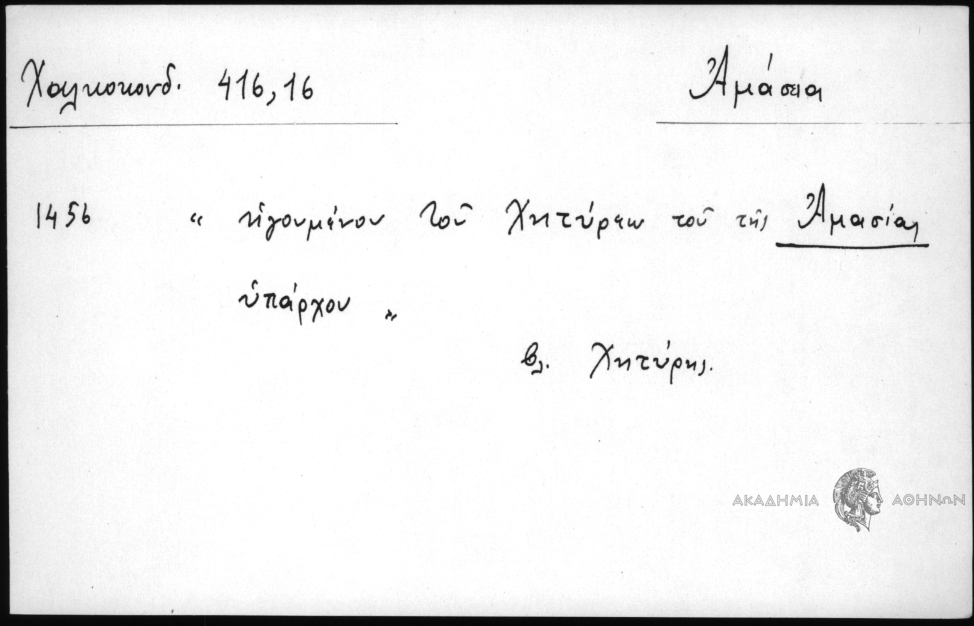 Χαλκοκονδ. 416,16
Ἀμάσεια
1456 " ἡγουμένου τοῦ Χητύρεω τοῦ τῆς Ἀμασίας
ὑπάρχου "
βλ. Χητύρης.
ΑΚΑΔΗΜΙΑ ΑΘΗΝΩΝ